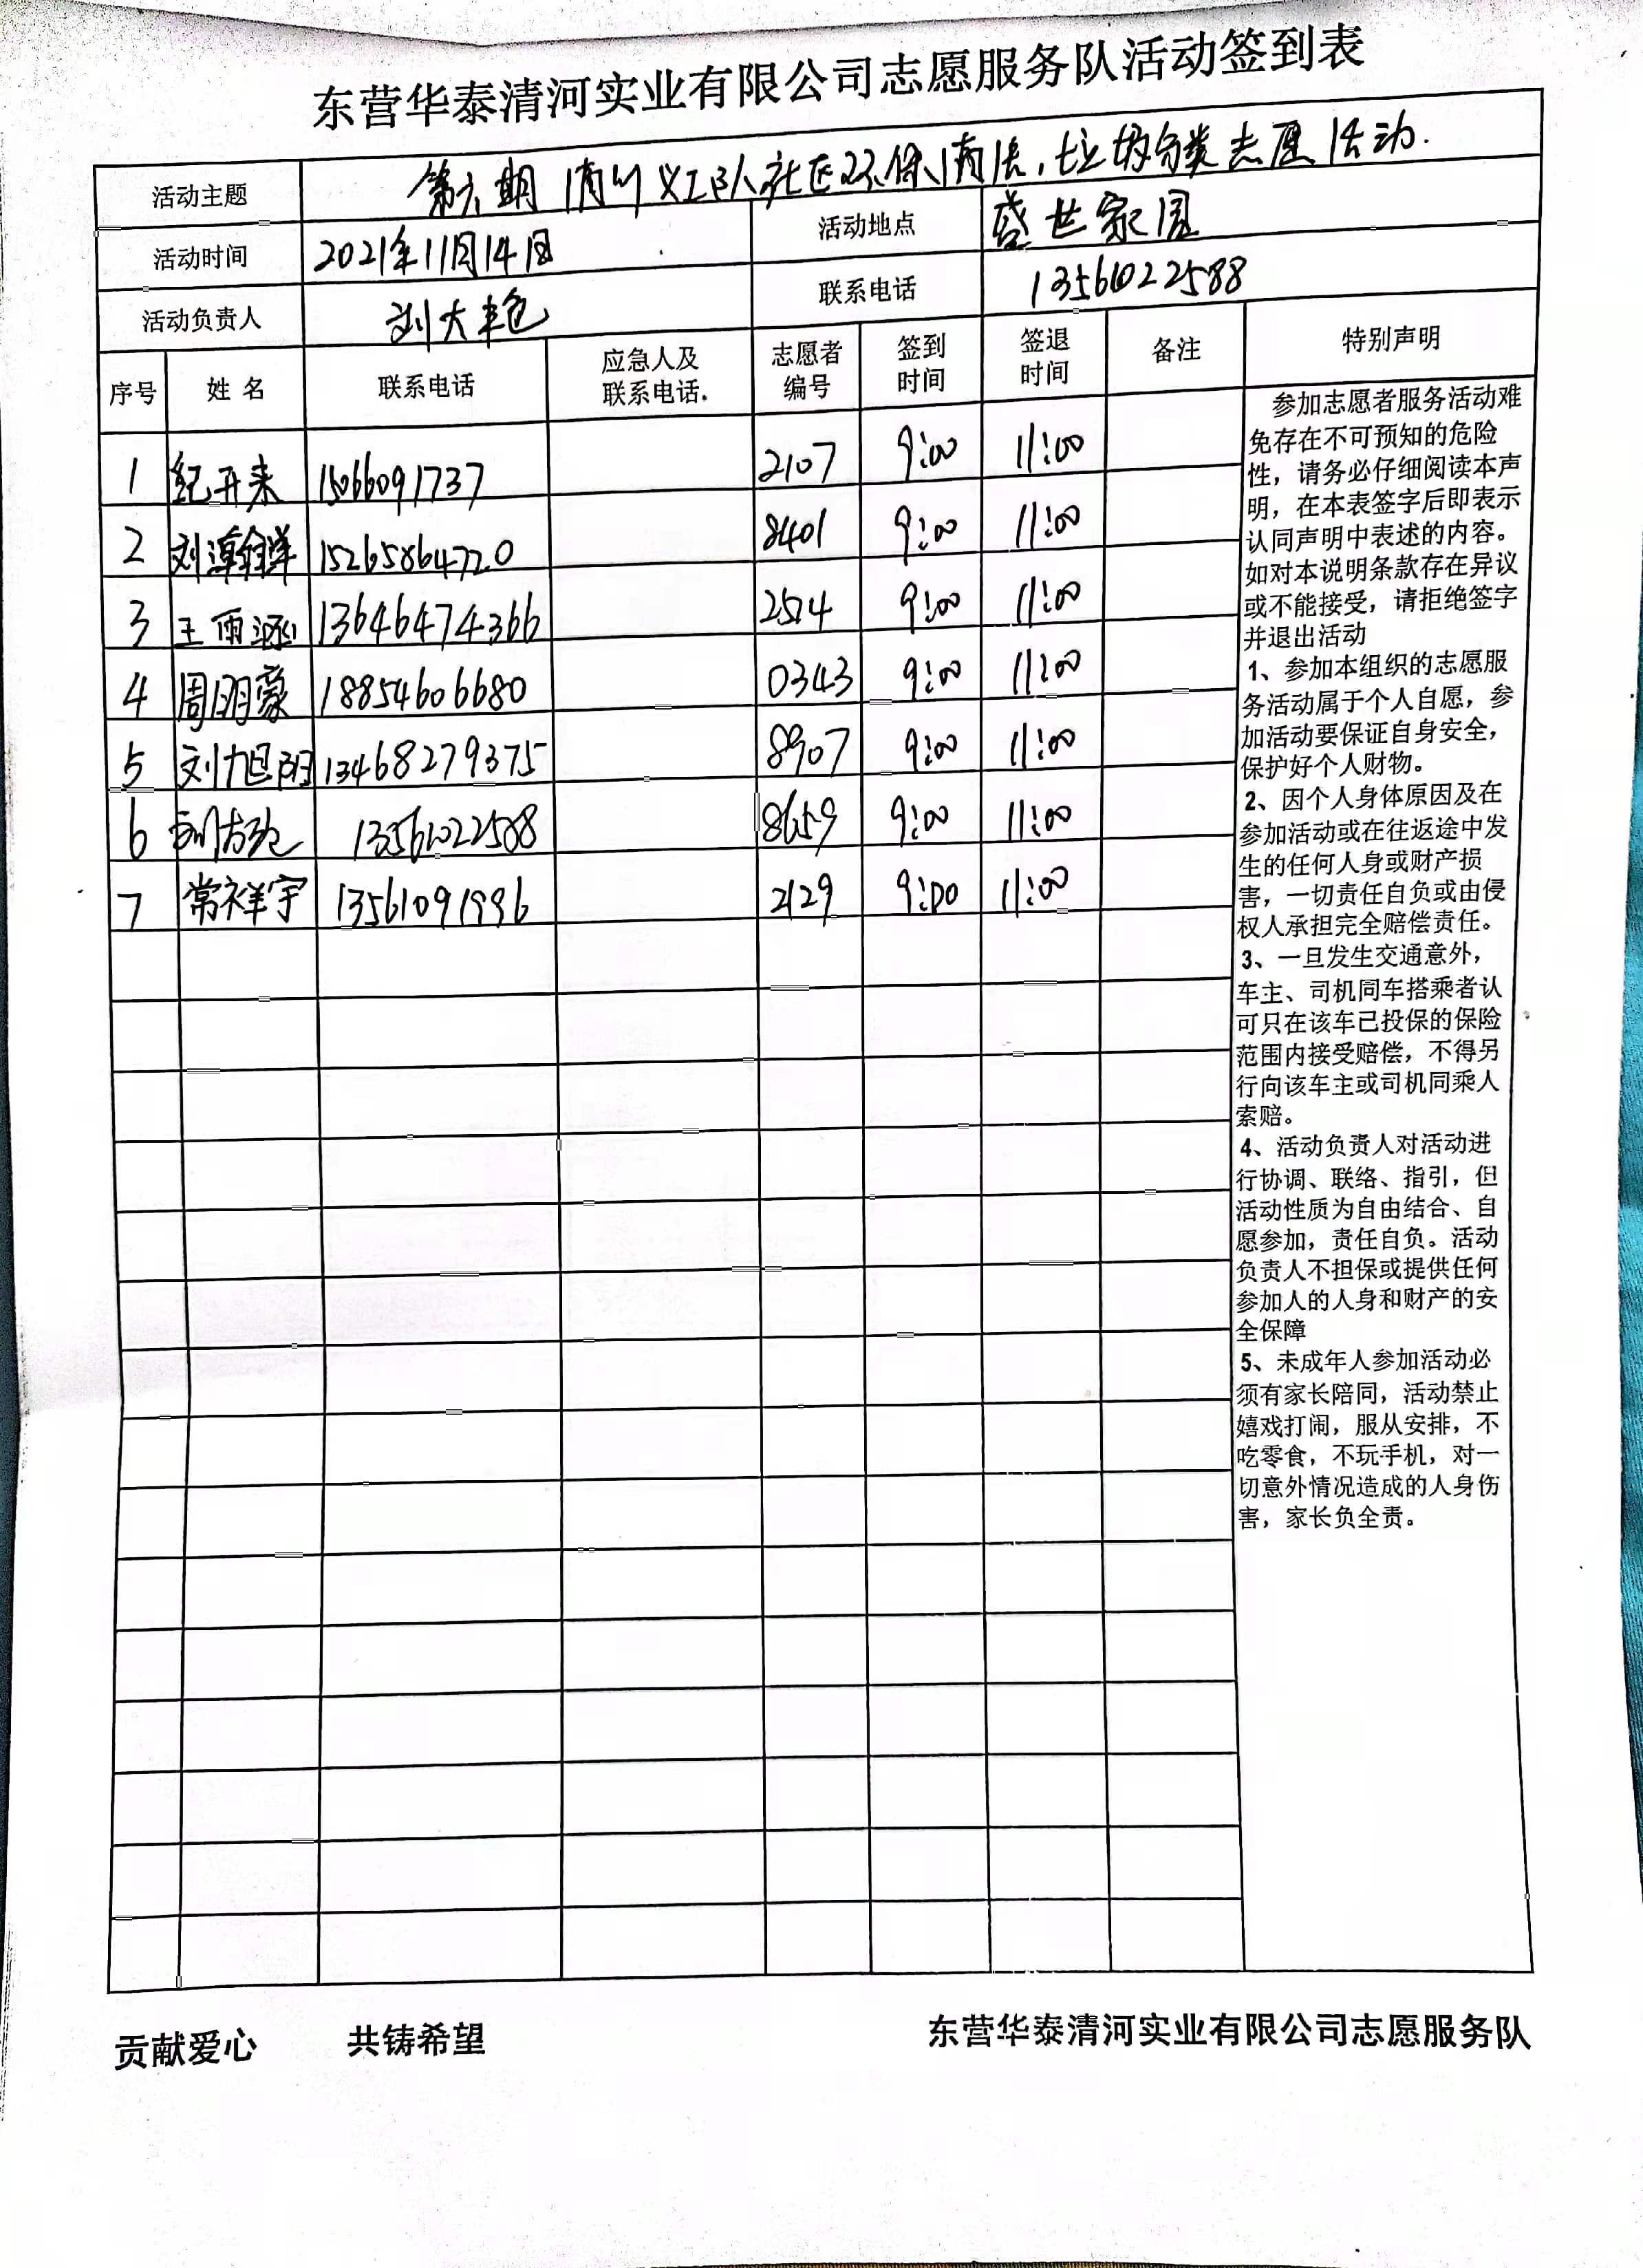 东营华泰清河实业有限公司志愿服务队活动签到表
活动主题 第六期 义工队社区环保清洁,垃圾分类志愿活动.
活动时间 2021年11月14日 活动地点 盛世家园
活动负责人 刘大 联系电话 13561022588
序号 姓名 联系电话 应急人及联系电话. 志愿者编号 签到时间 签退时间 备注 特别声明
1 纪开来 15066091737 2107 9:00 11:00
2 刘瀚洋 15265864720 8401 9:00 11:00
3 王雨涵 13646474366 2514 9:00 11:00
4 周明蒙 18854606680 0343 9:00 11:00
5 刘旭阳 13468279375 8907 9:00 11:00
6 13561022588 8659 9:00 11:00
7 常祥宇 13561091996 2129 9:00 11:00
参加志愿者服务活动难
免存在不可预知的危险
性,请务必仔细阅读本声
明,在本表签字后即表示
认同声明中表述的内容。
如对本说明条款存在异议
或不能接受,请拒绝签字
并退出活动
1、参加本组织的志愿服
务活动属于个人自愿,参
加活动要保证自身安全,
保护好个人财物。
2、因个人身体原因及在
参加活动或在往返途中发
生的任何人身或财产损
害,一切责任自负或由侵
权人承担完全赔偿责任。
3、一旦发生交通意外,
车主、司机同车搭乘者认
可只在该车已投保的保险
范围内接受赔偿,不得另
行向该车主或司机同乘人
索赔。
4、活动负责人对活动进
行协调、联络、指引,但
活动性质为自由结合、自
愿参加,责任自负。活动
负责人不担保或提供任何
参加人的人身和财产的安
全保障
5、未成年人参加活动必
须有家长陪同,活动禁止
嬉戏打闹,服从安排,不
吃零食,不玩手机,对一
切意外情况造成的人身伤
害,家长负全责。
贡献爱心 共铸希望 东营华泰清河实业有限公司志愿服务队